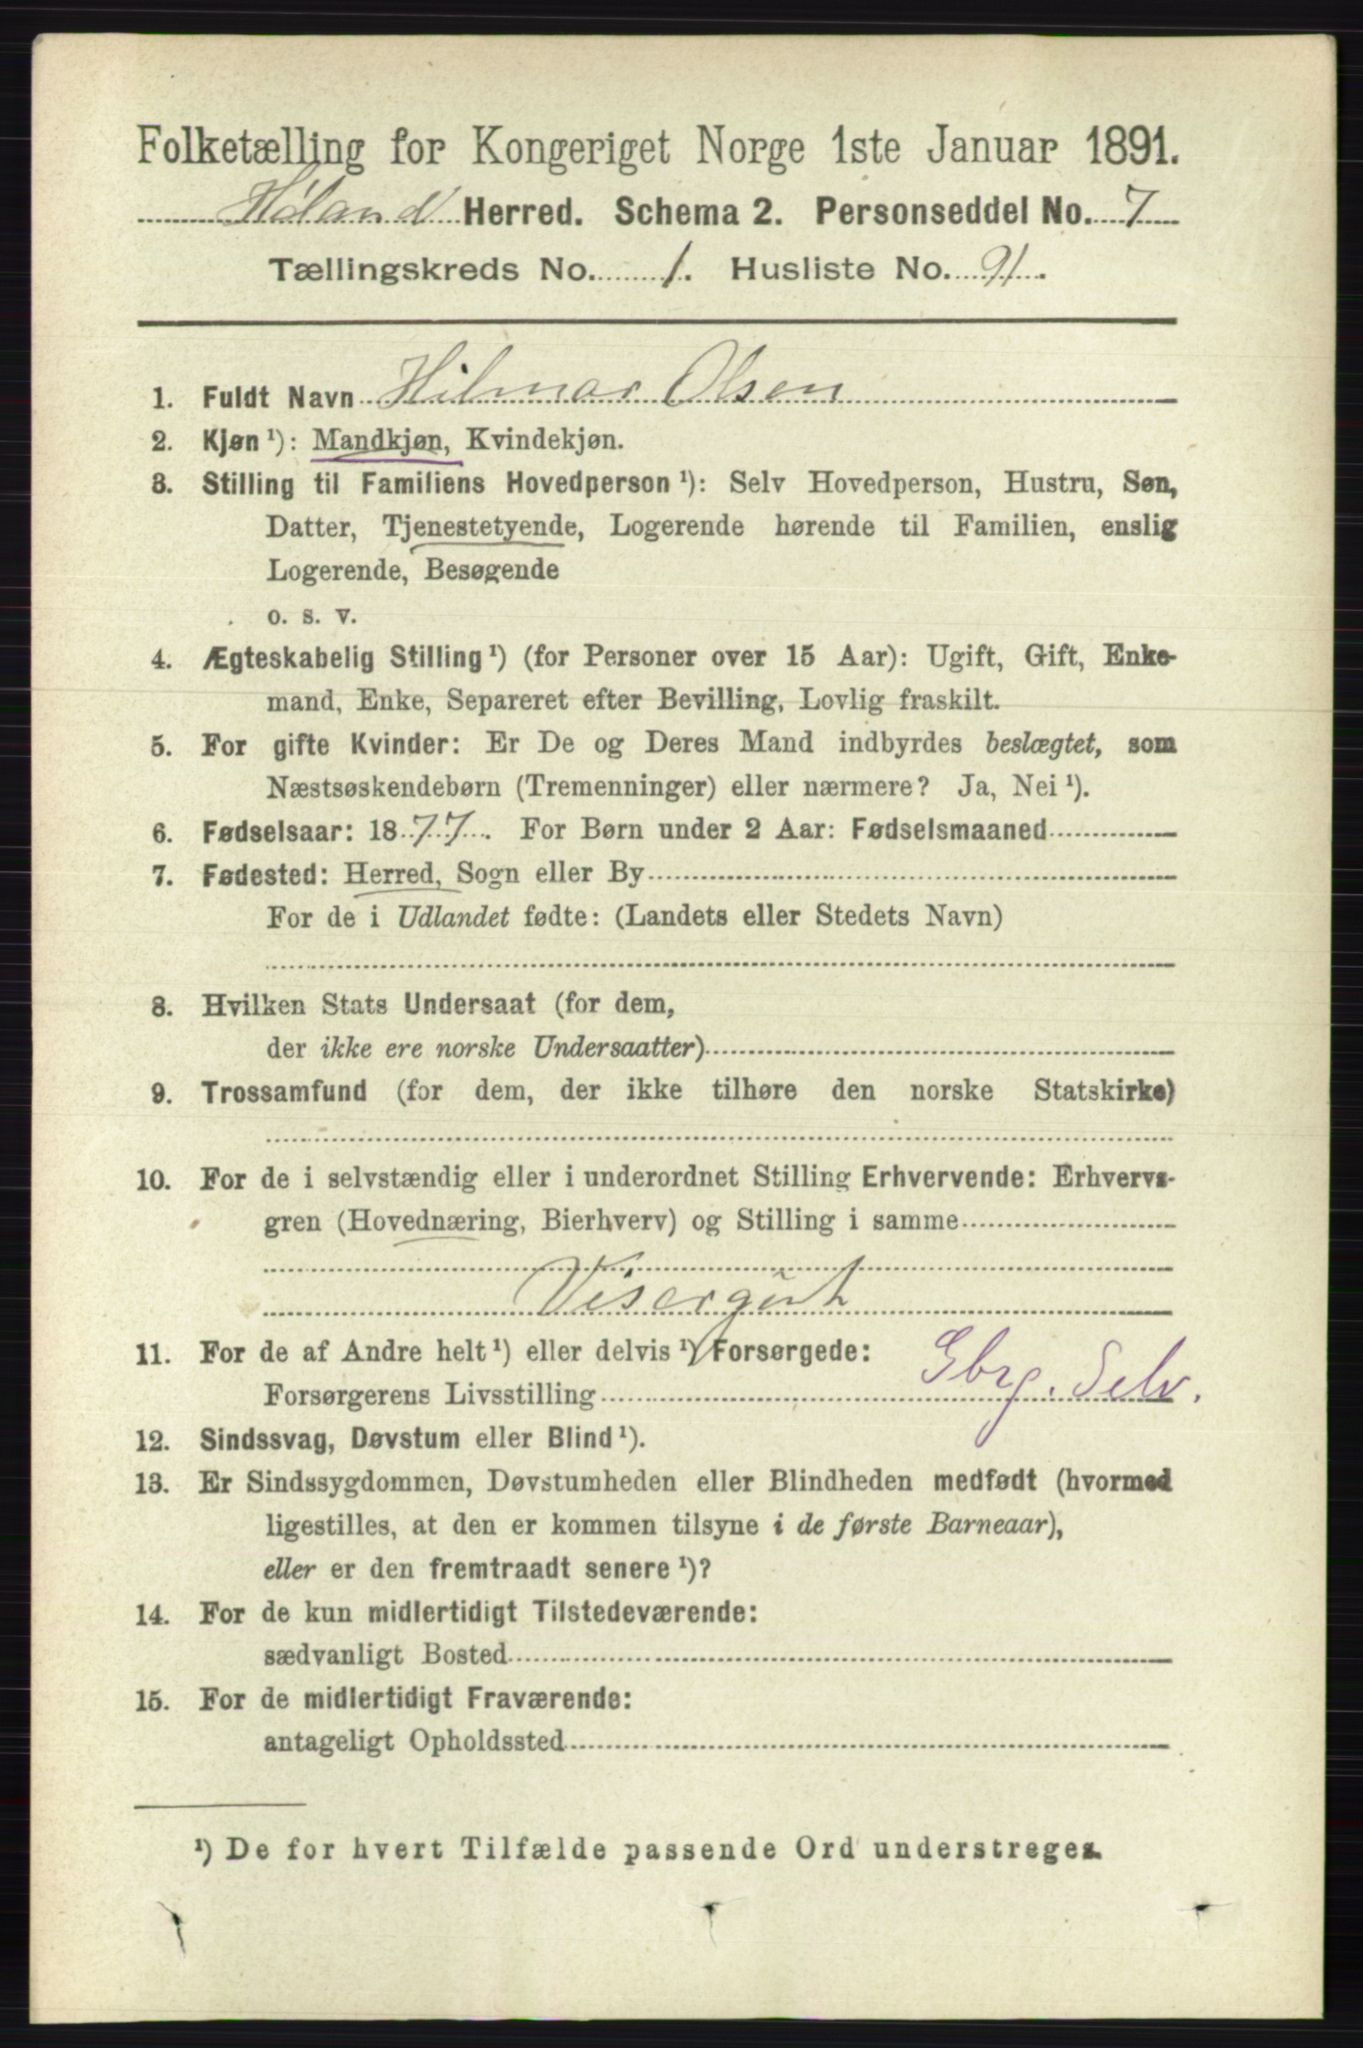 Folketælling for Kongeriget Norge 1ste Januar 1891.
Høland Herred. Schema 2. Personseddel No. 7
Tællingskreds No. 1. Husliste No. 91.
1. Fuldt Navn Hilmar Olsen
2. Kjøn ¹): Mandkjøn, Kvindekjøn.
3. Stilling til Familiens Hovedperson ¹): Selv Hovedperson, Hustru, Søn,
Datter, Tjenestetyende, Logerende hørende til Familien, enslig
Logerende, Besøgende
o. s. v.
4. Ægteskabelig Stilling ¹) (for Personer over 15 Aar): Ugift, Gift, Enke-
mand, Enke, Separeret efter Bevilling, Lovlig fraskilt.
5. For gifte Kvinder: Er De og Deres Mand indbyrdes beslægtet, som
Næstsøskendebørn (Tremenninger) eller nærmere? Ja, Nei ¹).
6. Fødselsaar: 1877. For Børn under 2 Aar: Fødselsmaaned
7. Fødested: Herred, Sogn eller By
For de i Udlandet fødte: (Landets eller Stedets Navn)
8. Hvilken Stats Undersaat (for dem,
der ikke ere norske Undersaatter)
9. Trossamfund (for dem, der ikke tilhøre den norske Statskirke)
10. For de i selvstændig eller i underordnet Stilling Erhvervende: Erhvervs-
gren (Hovednæring, Bierhverv) og Stilling i samme
Visergut
11. For de af Andre helt ¹) eller delvis ¹) Forsørgede:
Forsørgerens Livsstilling Gbrg. Selv.
12. Sindssvag, Døvstum eller Blind ¹).
13. Er Sindssygdommen, Døvstumheden eller Blindheden medfødt (hvormed
ligestilles, at den er kommen tilsyne i de første Barneaar),
eller er den fremtraadt senere ¹)?
14. For de kun midlertidigt Tilstedeværende:
sædvanligt Bosted
15. For de midlertidigt Fraværende:
antageligt Opholdssted
¹) De for hvert Tilfælde passende Ord understreges.